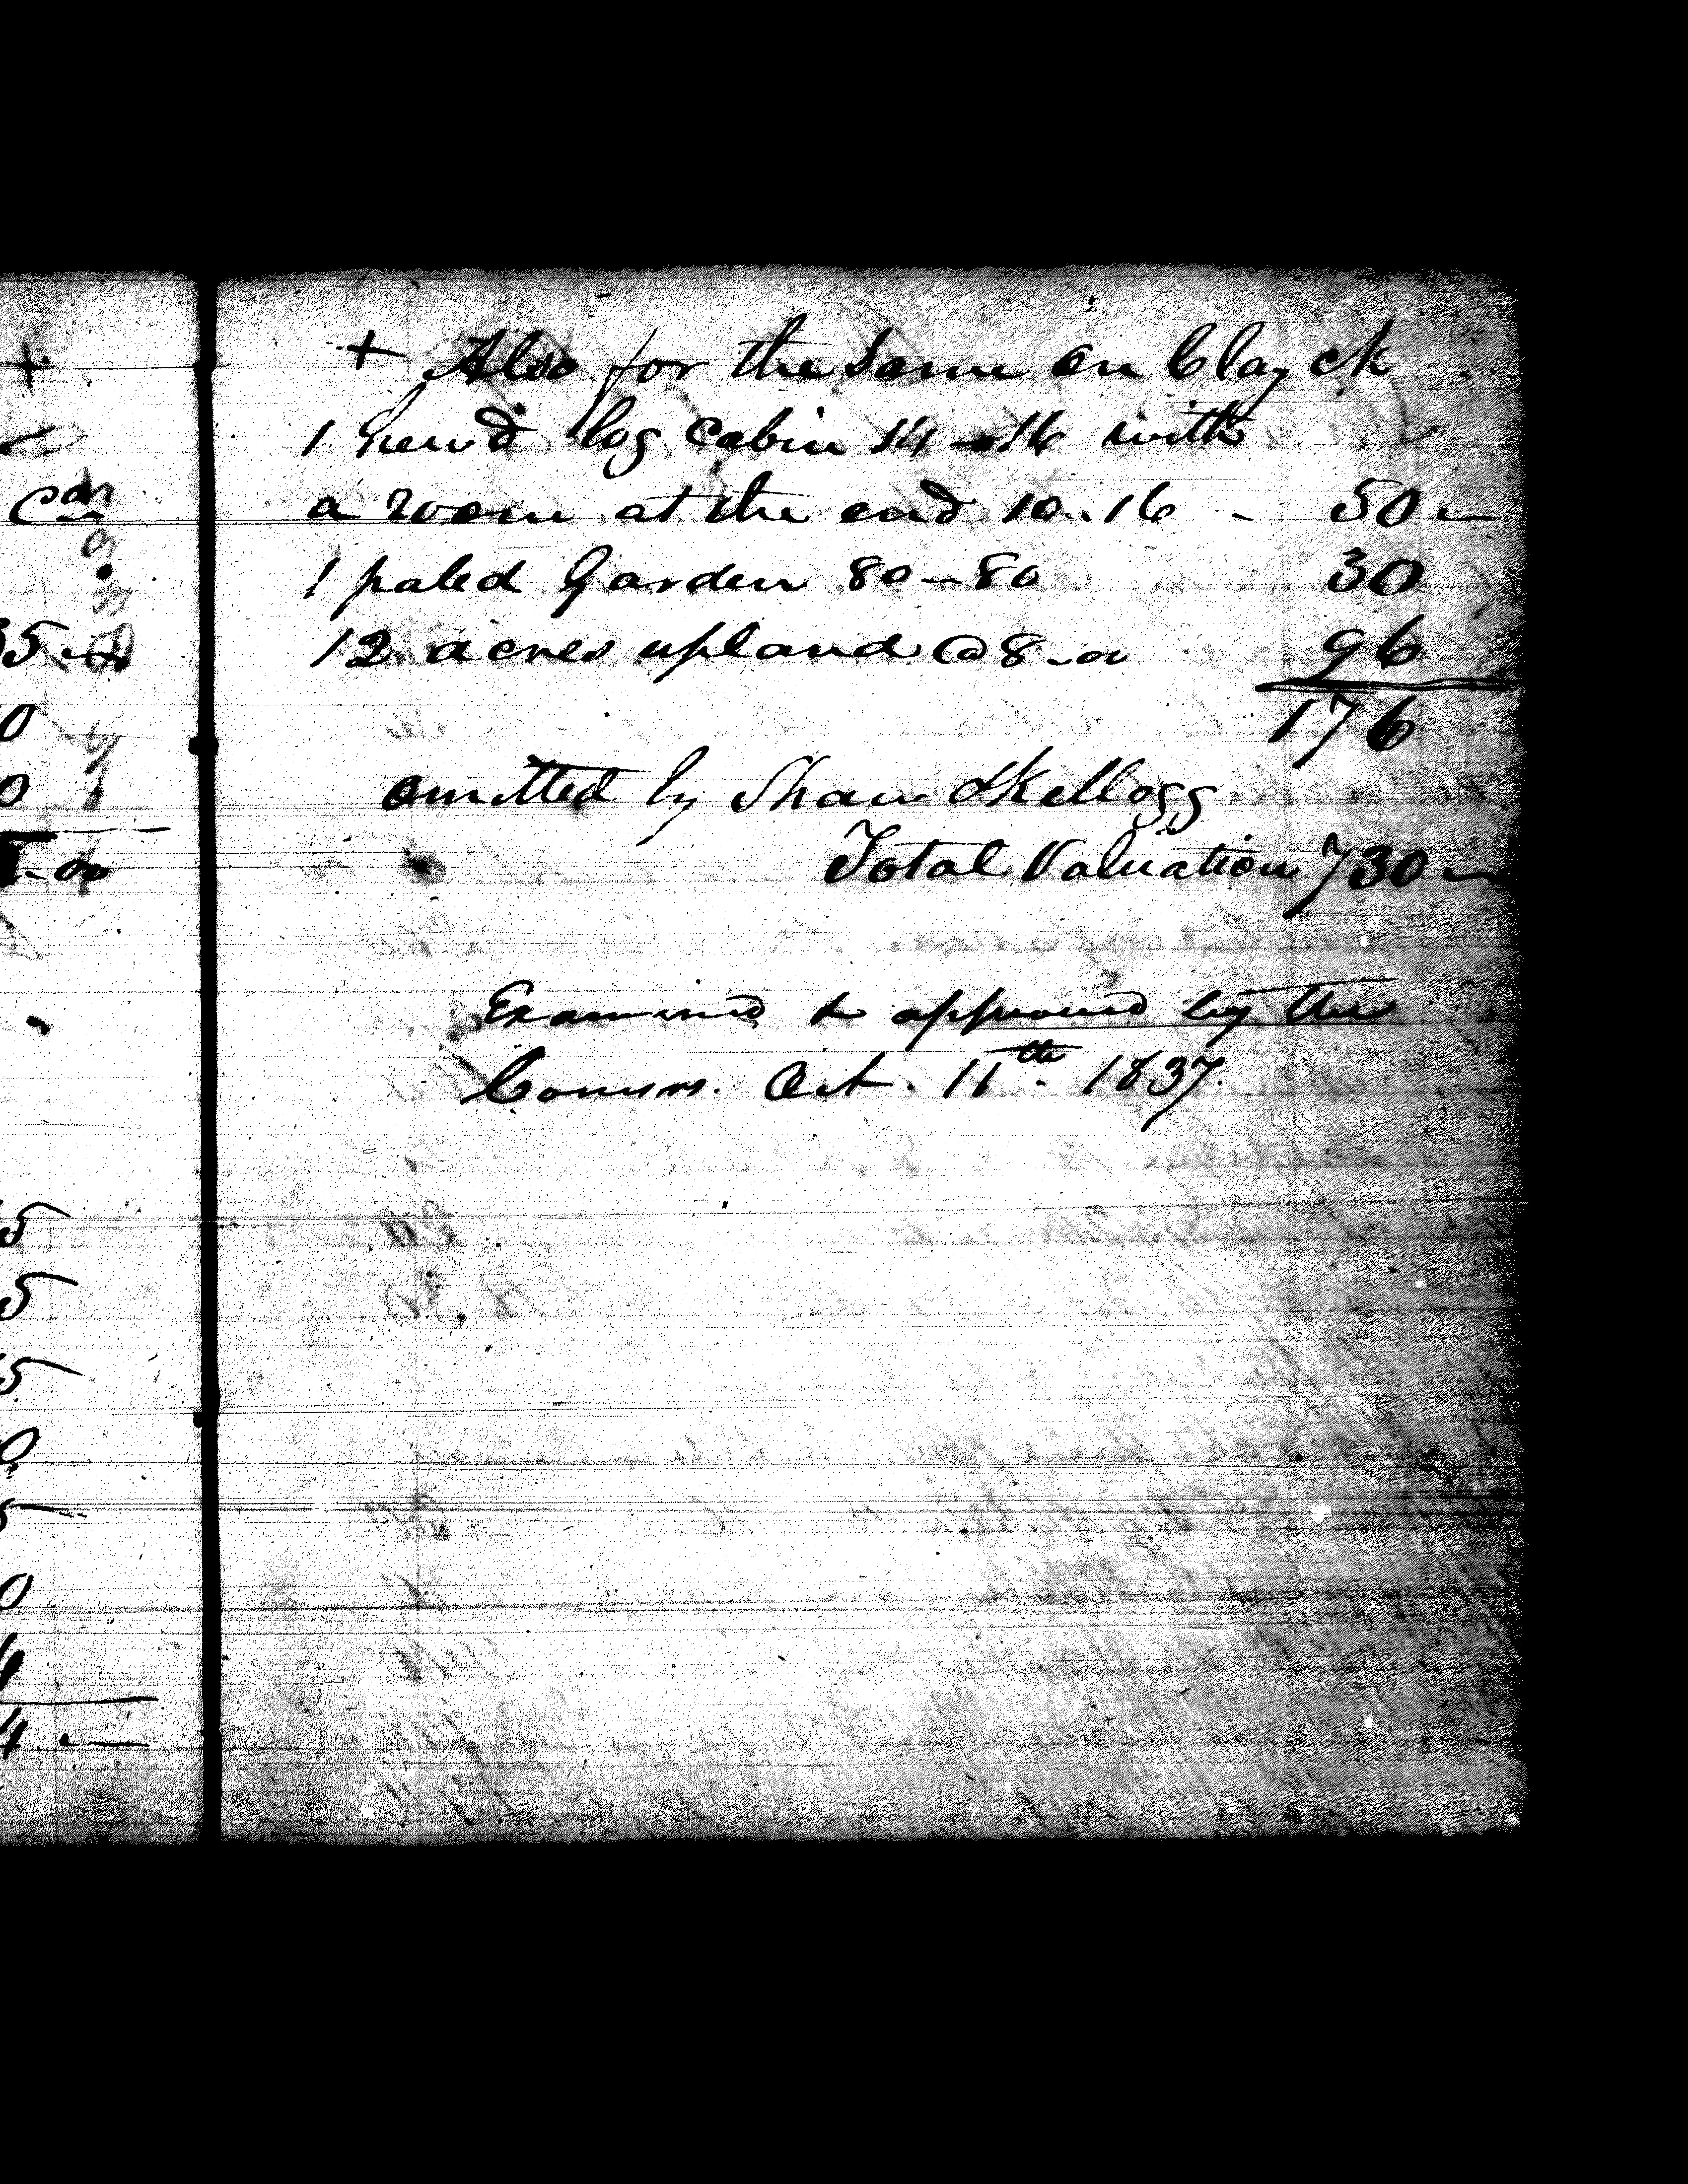 +
Can
35-00
0
0
-00
5
5
5
0
5
0
4
4 —
+ Also for the same on Clay ck
1 hew'd log cabin 14-16 with
a room at the end 10.16 - 50 —
1 paled Garden 80-80 30
12 acres upland @ 8-00 96
176
omitted by Shaw & Kellogg
Total Valuation 730 —
Examined & approved by the
Comm. Oct. 11th. 1837.